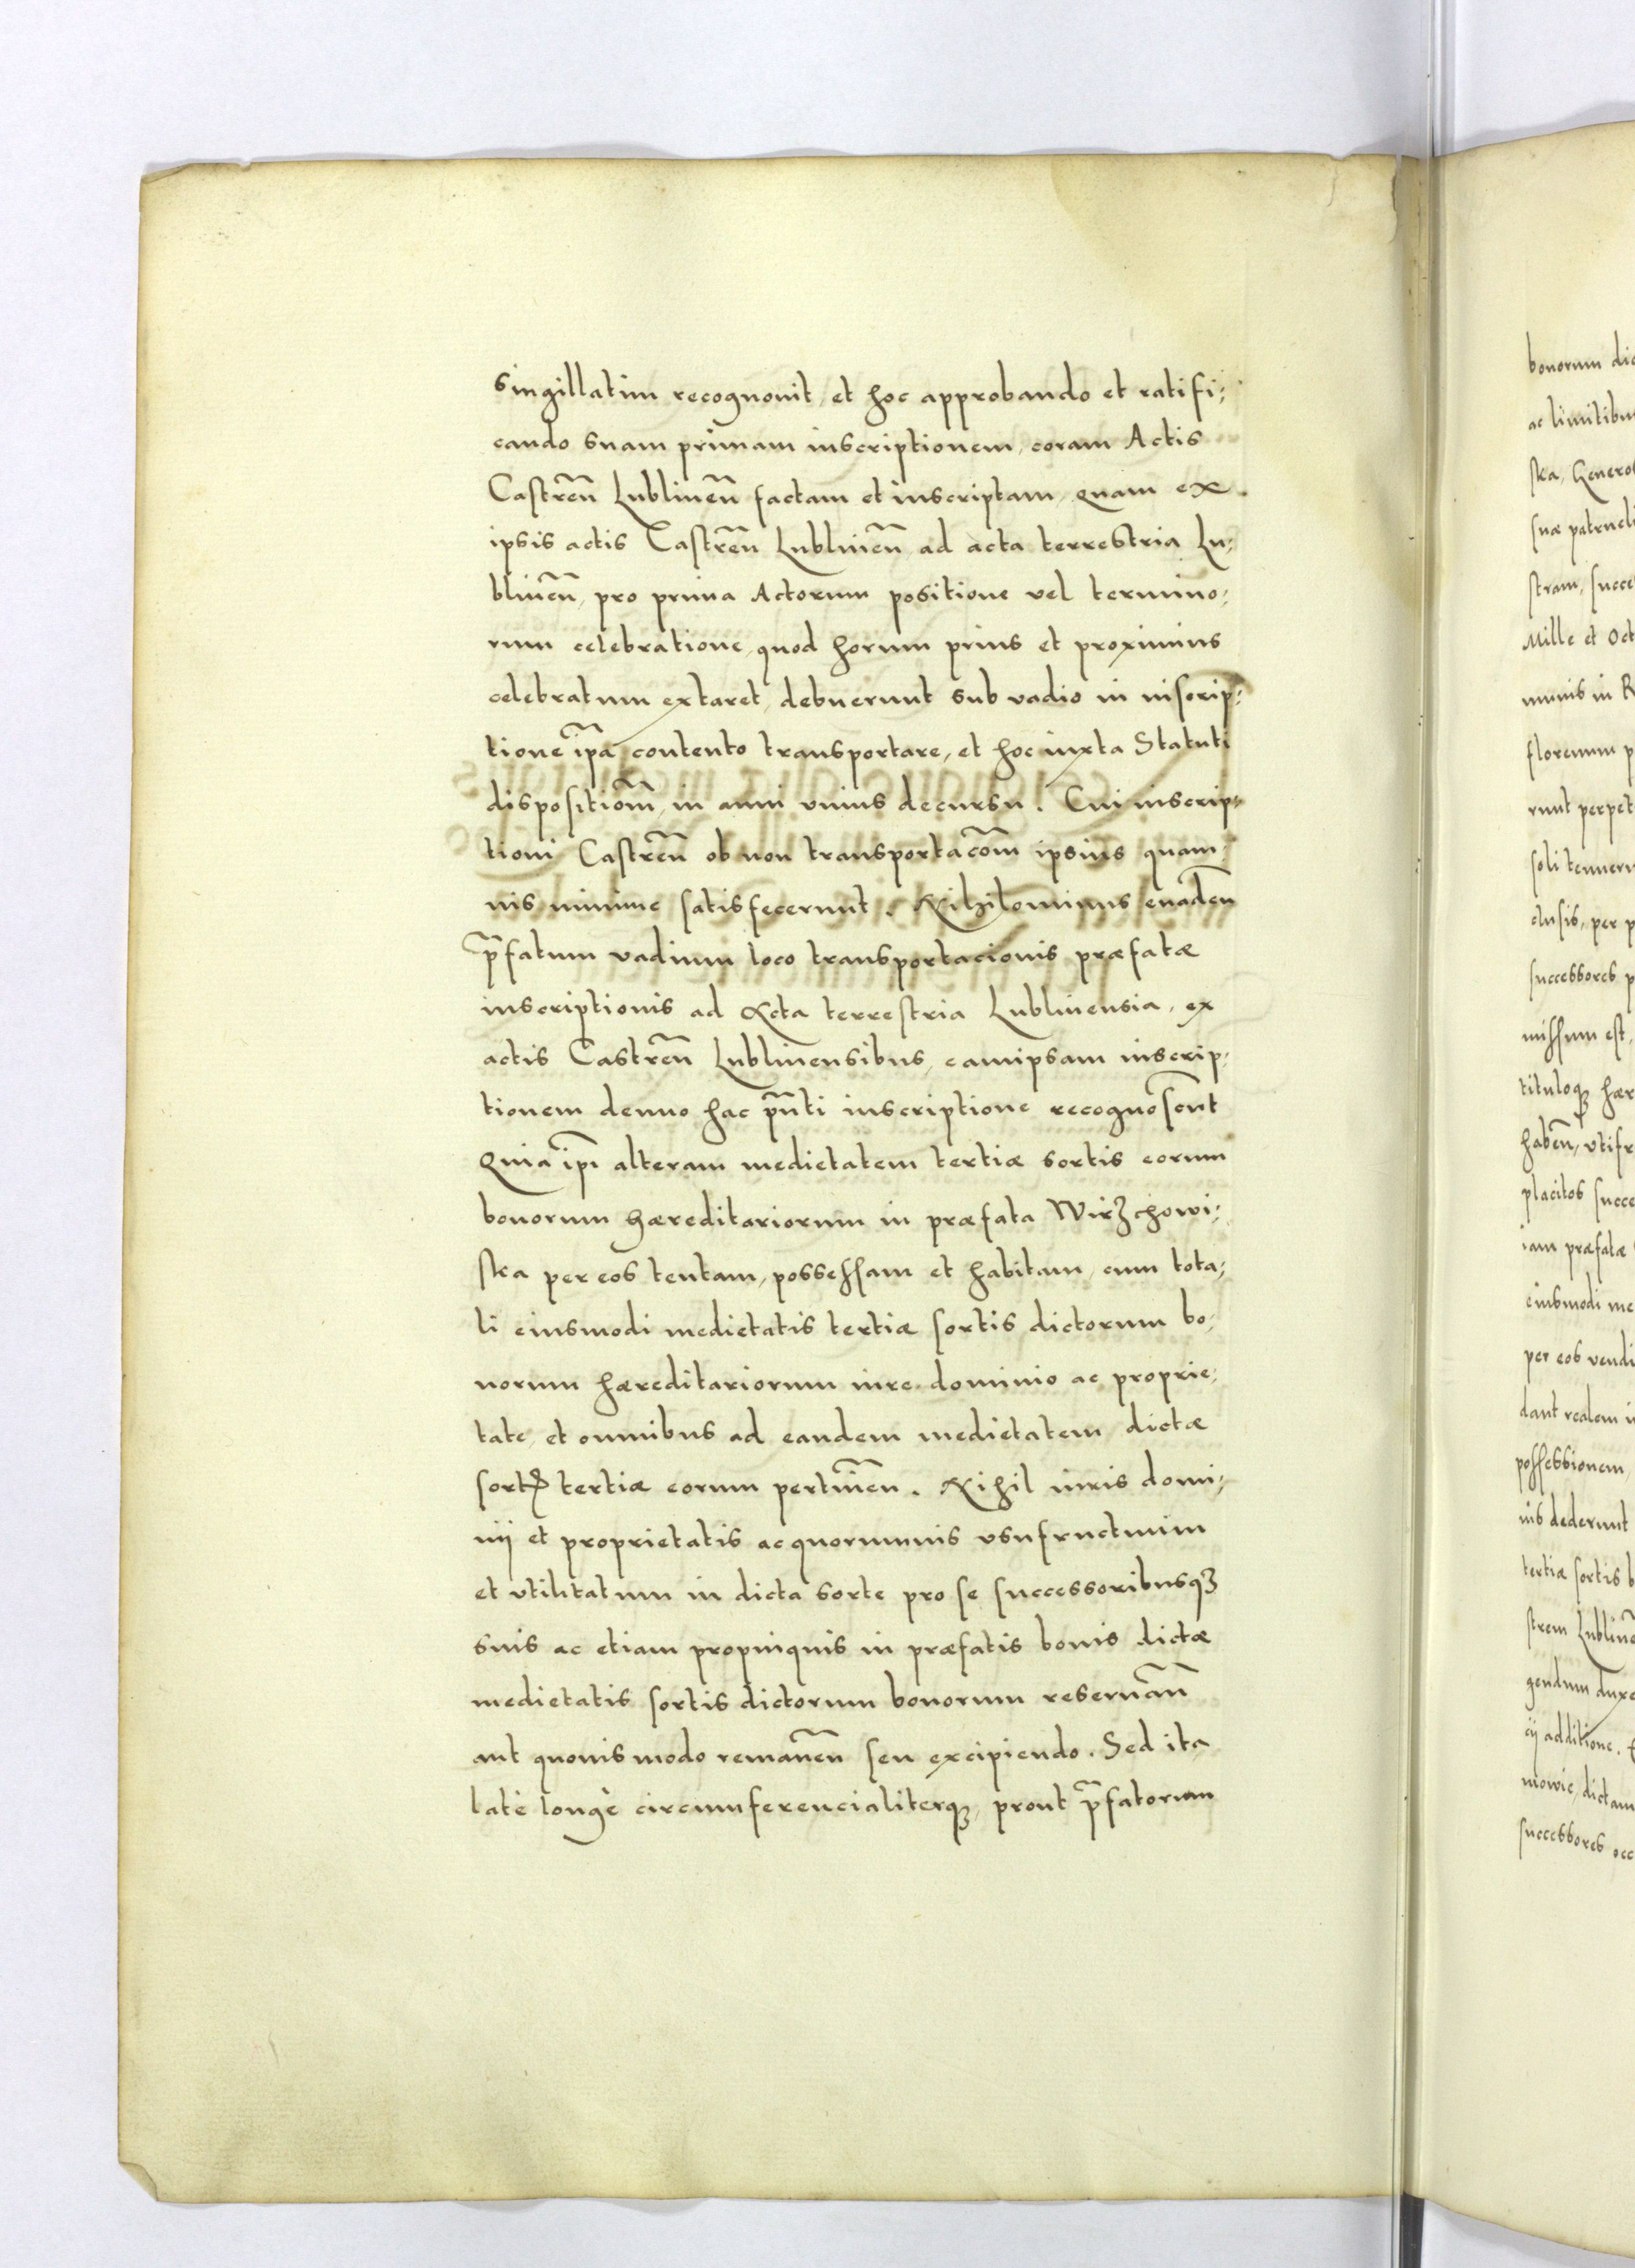 singillatim recognovit, et hoc approbando et ratifi;
cando suam primam inscriptionem, coram Actis
Castreñ Lublineñ factam et inscriptam, quam ex
ipsis actis Castreñ Lublineñ ad acta terrestria Lu;
blineñ, pro prima Actorum positione vel termino;
rum celebratione, quod horum prius et proximius
celebratum extaret, debuerunt sub vadio in inscrip;
tione ip̃a contento transportare, et hoc iuxta Statuti
dispositiom̃, in anni unius decursu. Cui inscrip;
tioni Castreñ ob non transportacõm ipsius quam;
vis minime satisfecerunt. Nihilominus evadeñ
p̃fatum vadium loco transportacionis præfatæ
inscriptionis ad Acta terrestria Lublinensia, ex
actis Castreñ Lublinensibus, eamipsam inscrip;
tionem denuo hac p̃nti inscriptione recognoscũt
Quia ip̃i alteram medietatem tertiæ sortis eorum
bonorum hæreditariorum in præfata Wirzchowi;
ska per eos tentam, possessam et habitam, cum tota;
li eiusmodi medietatis tertiæ sortis dictorum bo;
norum hæreditariorum iure dominio ac proprie;
tate, et omnibus ad eandem medietatem dictæ
sortꝭ tertiæ eorum pertineñ. Nihil iuris domi;
nij et proprietatis ac quorumvis vsufructuum
et vtilitatum in dicta sorte pro se successoribusqꝫ
suis ac etiam propinquis in præfatis bonis dictæ
medietatis sortis dictorum bonorum reservañ
aut quovis modo remaneñ seu excipiendo. Sed ita
latè longè circumferencialiterqꝫ, prout p̃fatorum
bonorum
ac
ska,
suæ
stram,
Mille et
in
florenum
runt
soli
clusis, per
successores
missum est,
tituloqꝫ
habeñ,
placitos
iam præfatæ
eiusmodi
per eos
dant realem
possessionem,
dederunt
tertiæ sortis
gendum
additione.
dictam
successores